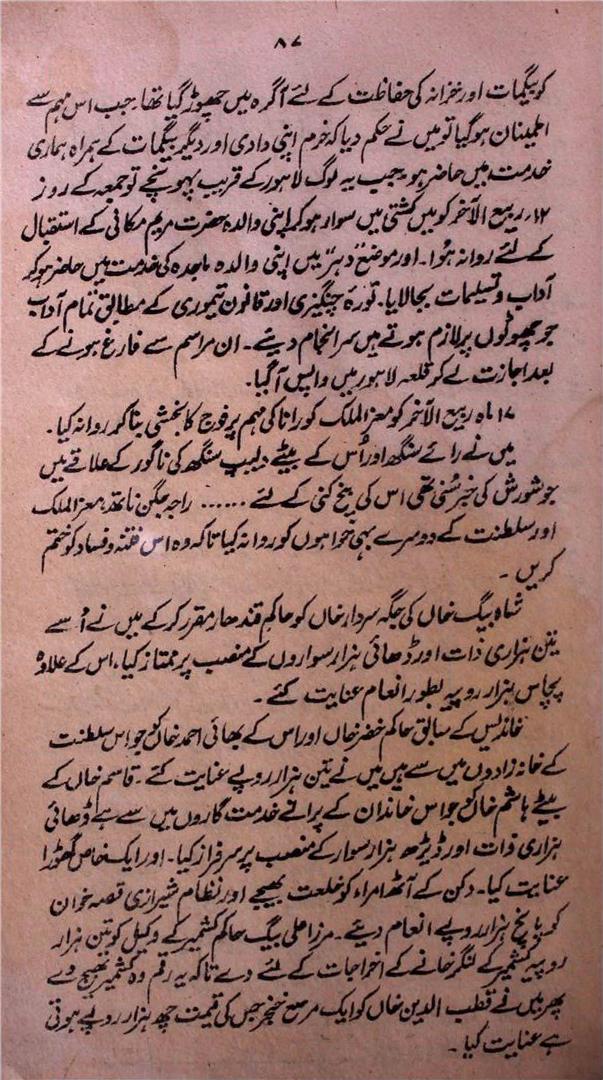 ۸۷
کو بیگمات اور خزانہ کی حفاظت کے لئے آگرہ میں چھوڑ گیا تھا۔ جب اس مہم سے
اطمینان ہو گیا تو میں نے حکم دیا کہ خرم اپنی دادی اور دیگر بیگمات کے ہمراہ ہماری
خدمت میں حاضر ہو۔ جب یہ لوگ لاہور کے قریب پہونچے تو جمعہ کے روز
۱۲؍ ربیع الآخر کو میں کشتی میں سوار ہو کر اپنی والدہ حضرت مریم مکانی کے استقبال
کے لئے روانہ ہُوا۔ اور موضع دہر میں اپنی والدہ ماجدہ کی خدمت میں حاضر ہو کر
آداب و تسلیمات بجا لایا۔ تورۂ چنگیزی اور قانون تیموری کے مطابق تمام آداب
جو چھوٹوں پر لازم ہوتے ہیں سرانجام دیئے۔ ان مراسم سے فارغ ہونے کے
بعد اجازت لے کر قلعہ لاہور میں واپس آ گیا۔
۱۷ ماہ ربیع الآخر کو معز الملک کو رانا کی مہم پر فوج کا بخشی بنا کر روانہ کیا۔
میں نے رائے سنگھ اور اُس کے بیٹے دلیپ سنگھ کی ناگور کے علاقے میں
جو شورش کی خبر سُنی تھی اس کی بیخ کنی کے لئے ...... راجہ جگن ناتھ، معز الملک
اور سلطنت کے دوسرے بہی خواہوں کو روانہ کیا تاکہ وہ اس فتنہ و فساد کو ختم
کریں۔
شاہ بیگ خاں کی جگہ سردار خاں کو حاکم قندھار مقرر کر کے میں نے اُسے
تین ہزاری ذات اور ڈھائی ہزار سواروں کے منصب پر ممتاز کیا، اس کے علاوہ
پچاس ہزار روپیہ بطور انعام عنایت کئے۔
خاندیس کے سابق حاکم خضر خاں اور اس کے بھائی احمد خاں کو جو اس سلطنت
کے خانہ زادوں میں سے ہیں میں نے تین ہزار روپے عنایت کئے۔ قاسم خاں کے
بیٹے ہاشم خاں کو جو اس خاندان کے پرانے خدمت گاروں میں سے ہے ڈھائی
ہزاری ذات اور ڈیڑھ ہزار سوار کے منصب پر سرفراز کیا۔ اور ایک خاص گھوڑا
عنایت کیا۔ دکن کے آٹھ امراء کو خلعت بھیجے اور نظام شیرازی قصہ خوان
کو پانچ ہزار روپے انعام دیئے۔ مرزا علی بیگ حاکم کشمیر کے وکیل کو تین ہزار
روپیہ کشمیر کے لنگر خانے کے اخراجات کے لئے دے تاکہ یہ رقم وہ کشمیر بھیج دے
پھر میں نے قطب الدین خاں کو ایک مرصع خنجر جس کی قیمت چھ ہزار روپے ہوتی
ہے عنایت کیا۔